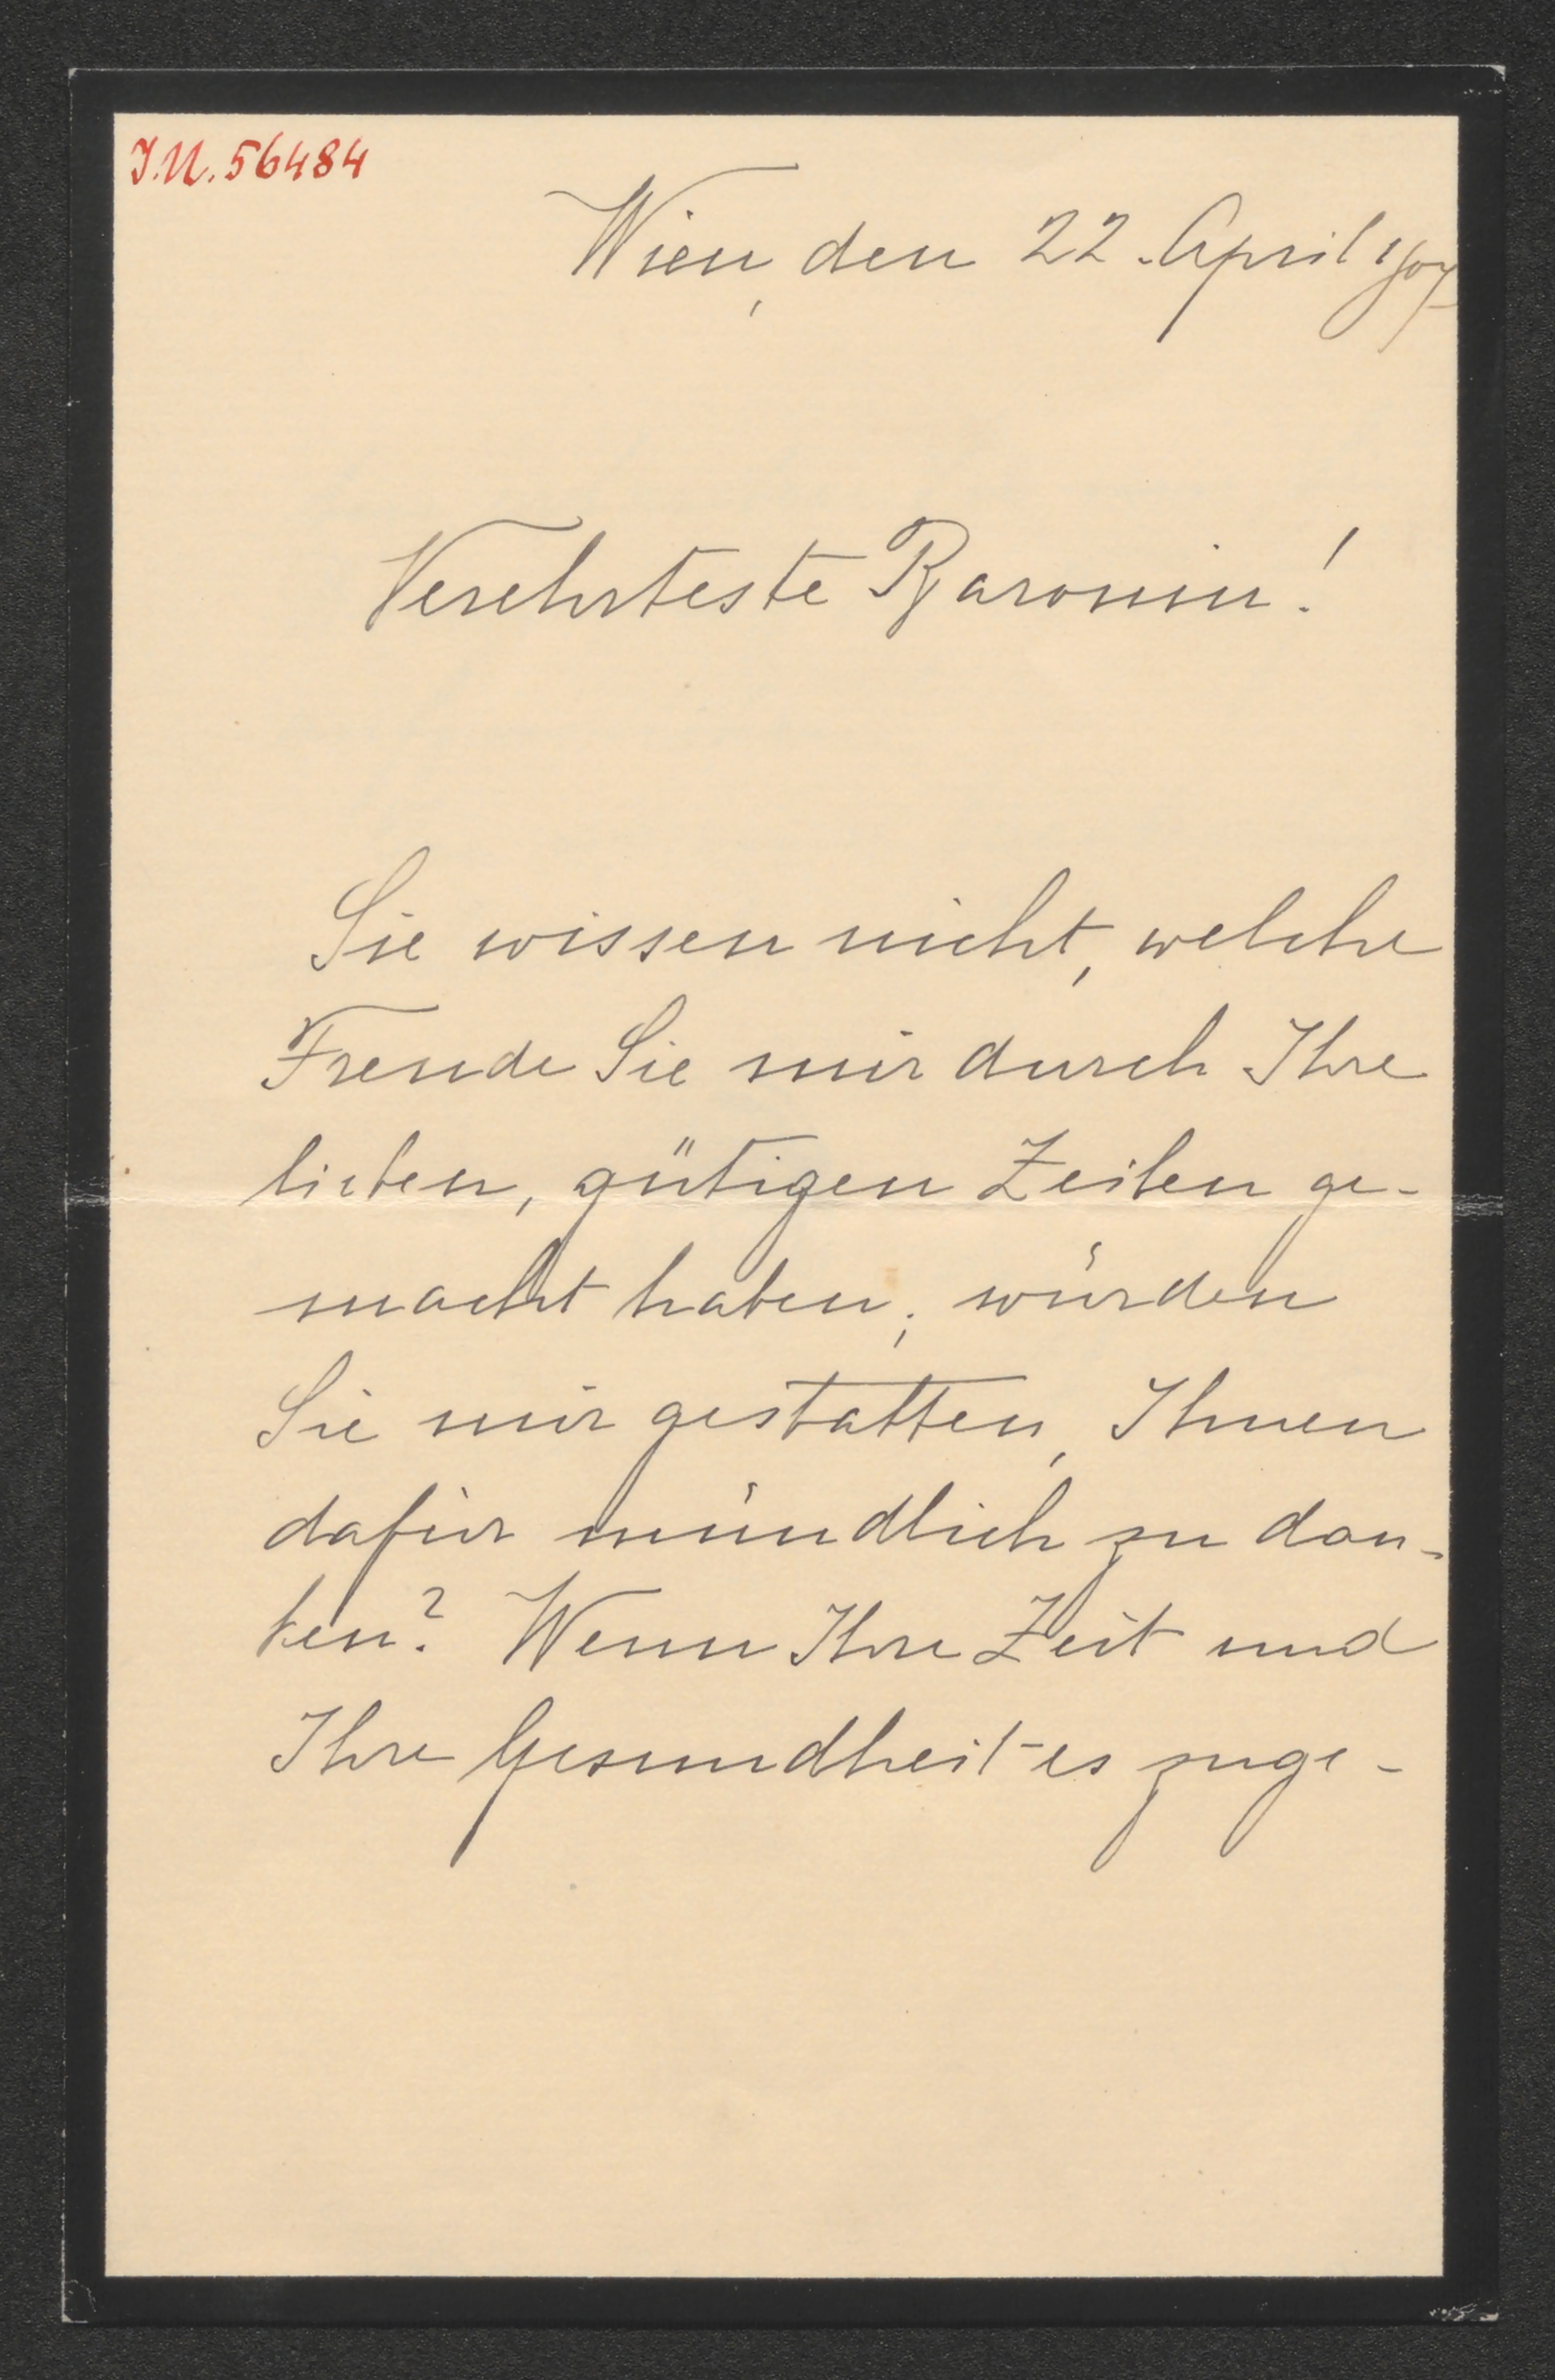 J.N. 56484
Wien, den 22. April 1907
Verehrteste Baronin!
Sie wissen nicht, welche
Freude Sie mir durch Ihre
lieben, gütigen Zeilen ge-
macht haben; würden
Sie mir gestatten, Ihnen
dafür mündlich zu dan-
ken? Wenn Ihre Zeit und
Ihre Gesundheit es zuge-